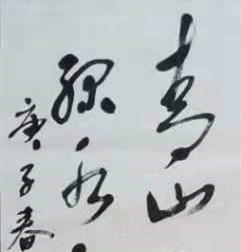 青山
绿水
庚子春